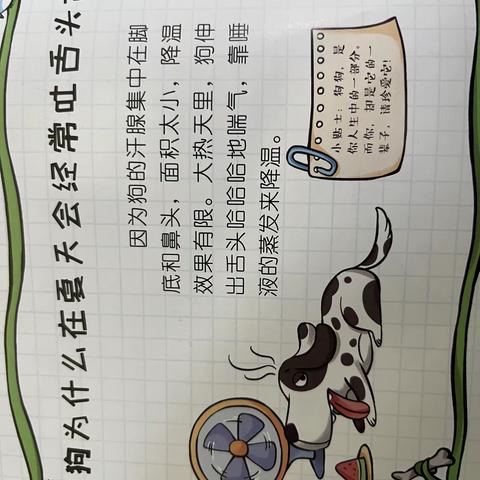 狗为什么在夏天会经常吐舌头
因为狗的汗腺集中在脚
底和鼻头，面积太小，降温
效果有限。大热天里，狗伸
出舌头哈哈哈地喘气，靠唾
液的蒸发来降温。
小贴士：狗狗，是
你人生中的一部分。
而你，却是它的一
辈子，请珍爱它！